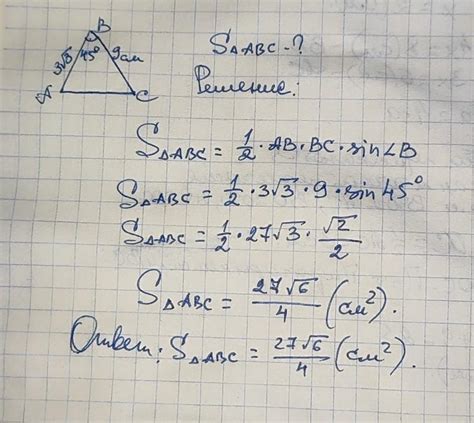 B
3√3 45° 9 см
A C
S△ABC - ?
Решение:
S△ABC = 1/2 · AB · BC · sin∠B
S△ABC = 1/2 · 3√3 · 9 · sin 45°
S△ABC = 1/2 · 27√3 · √2/2
S△ABC = 27√6/4 (см²).
Ответ: S△ABC = 27√6/4 (см²).